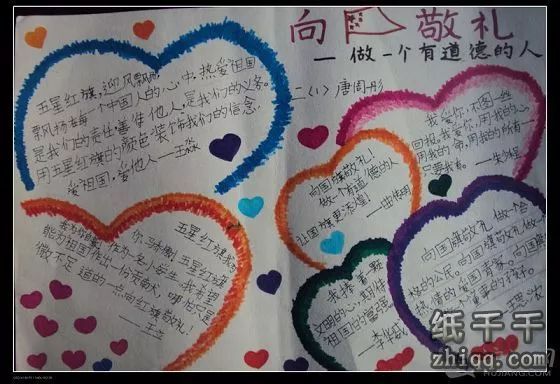 向 敬礼
— 做一个有道德的人
二(1) 唐周彤
五星红旗,迎风飘飘
飘扬在每一个中国人的心中,热爱祖国
是我们的责任,善待他人,是我们的义务。
用五星红旗的颜色装饰我们的信念
爱祖国,爱他人——王淼
我爱你,不图一丝
回报。我爱你,用我的心
用我的命,用我的所有
只要我有。
向国旗敬礼!
做一个有道德的人
让国旗更添辉!
你,五星红旗
作为一名小学生,我希望
能为祖国作出一份贡献,哪怕只是
微不足道的一点向红旗敬礼!
——王
我捧着一颗
文明的心,期待
祖国的富强
向国旗敬礼,做个合
格的公民。向国旗敬礼做个有
热情的爱国青家。向国旗
纸千千
zhiqq.com
HUJIANG.COM